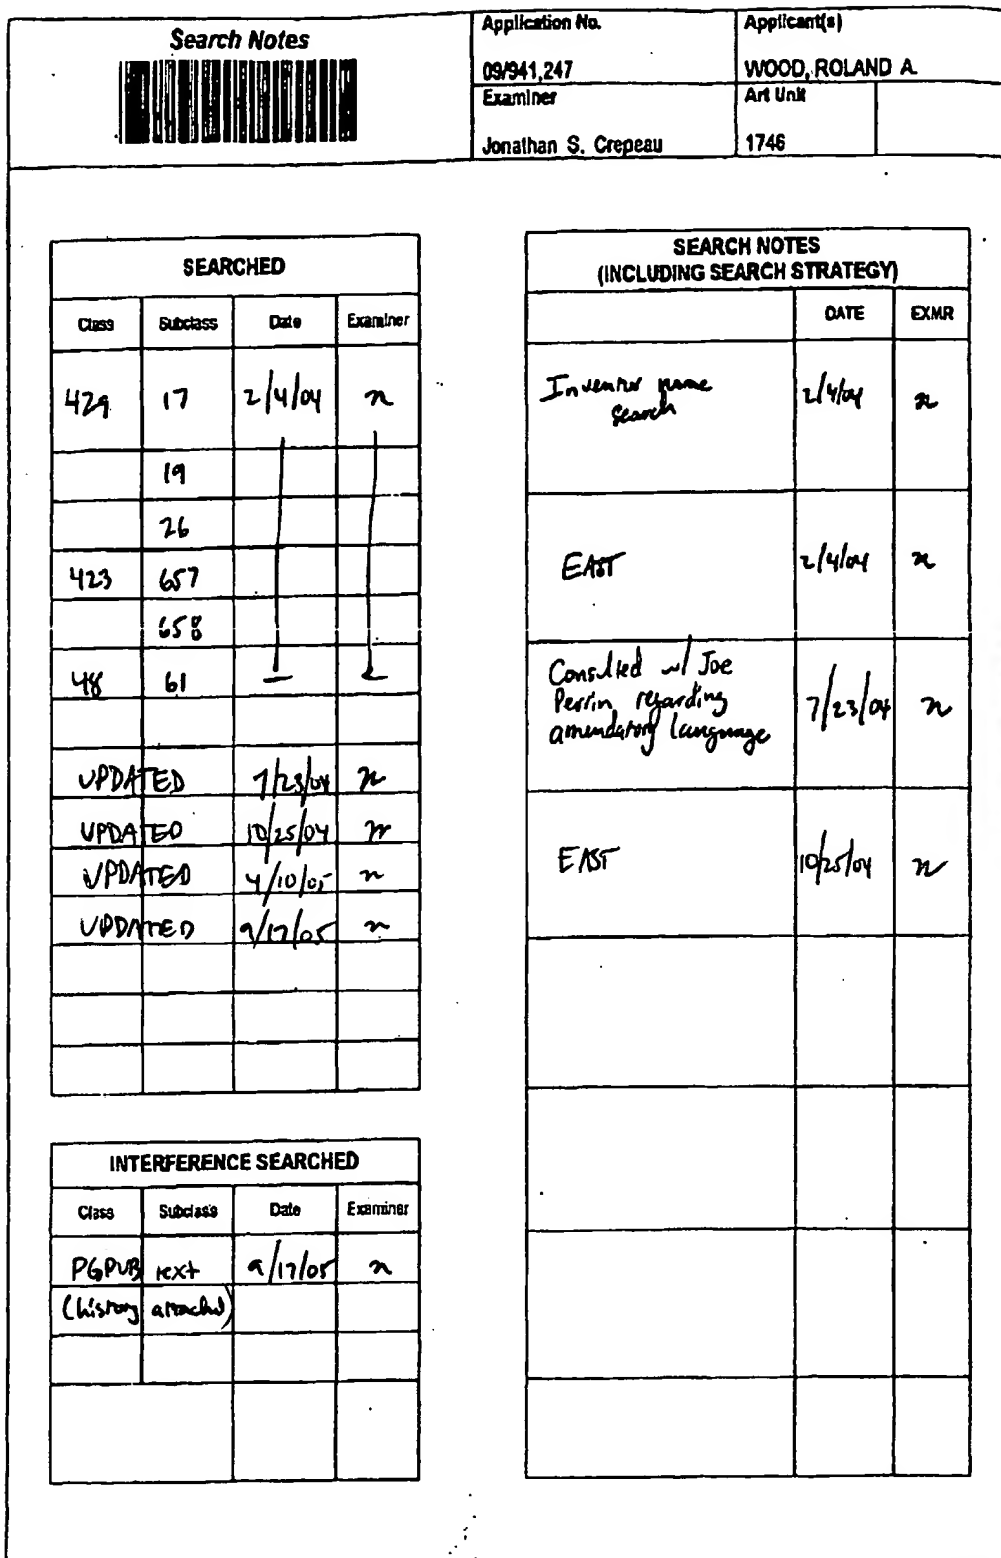 Search Notes
Application No.
Applicant(s)
09/941,247
WOOD, ROLAND A.
Examiner
Art Unit
Jonathan S. Crepeau
1746
SEARCHED
Class Subclass Date Examiner
429 17 2/4/04
19
26
423 657
658
48 61
UPDATED 7/23/04
UPDATED 10/25/04
UPDATED 4/10/05
UPDATED 9/17/05
INTERFERENCE SEARCHED
Class Subclass Date Examiner
PGPUB text 9/17/05
(history attached)
SEARCH NOTES
(INCLUDING SEARCH STRATEGY)
DATE EXMR
Inventor name 2/4/04
search
EAST 2/4/04
Consulted w/ Joe
Perrin regarding 7/23/04
amendatory language
EAST 10/25/04